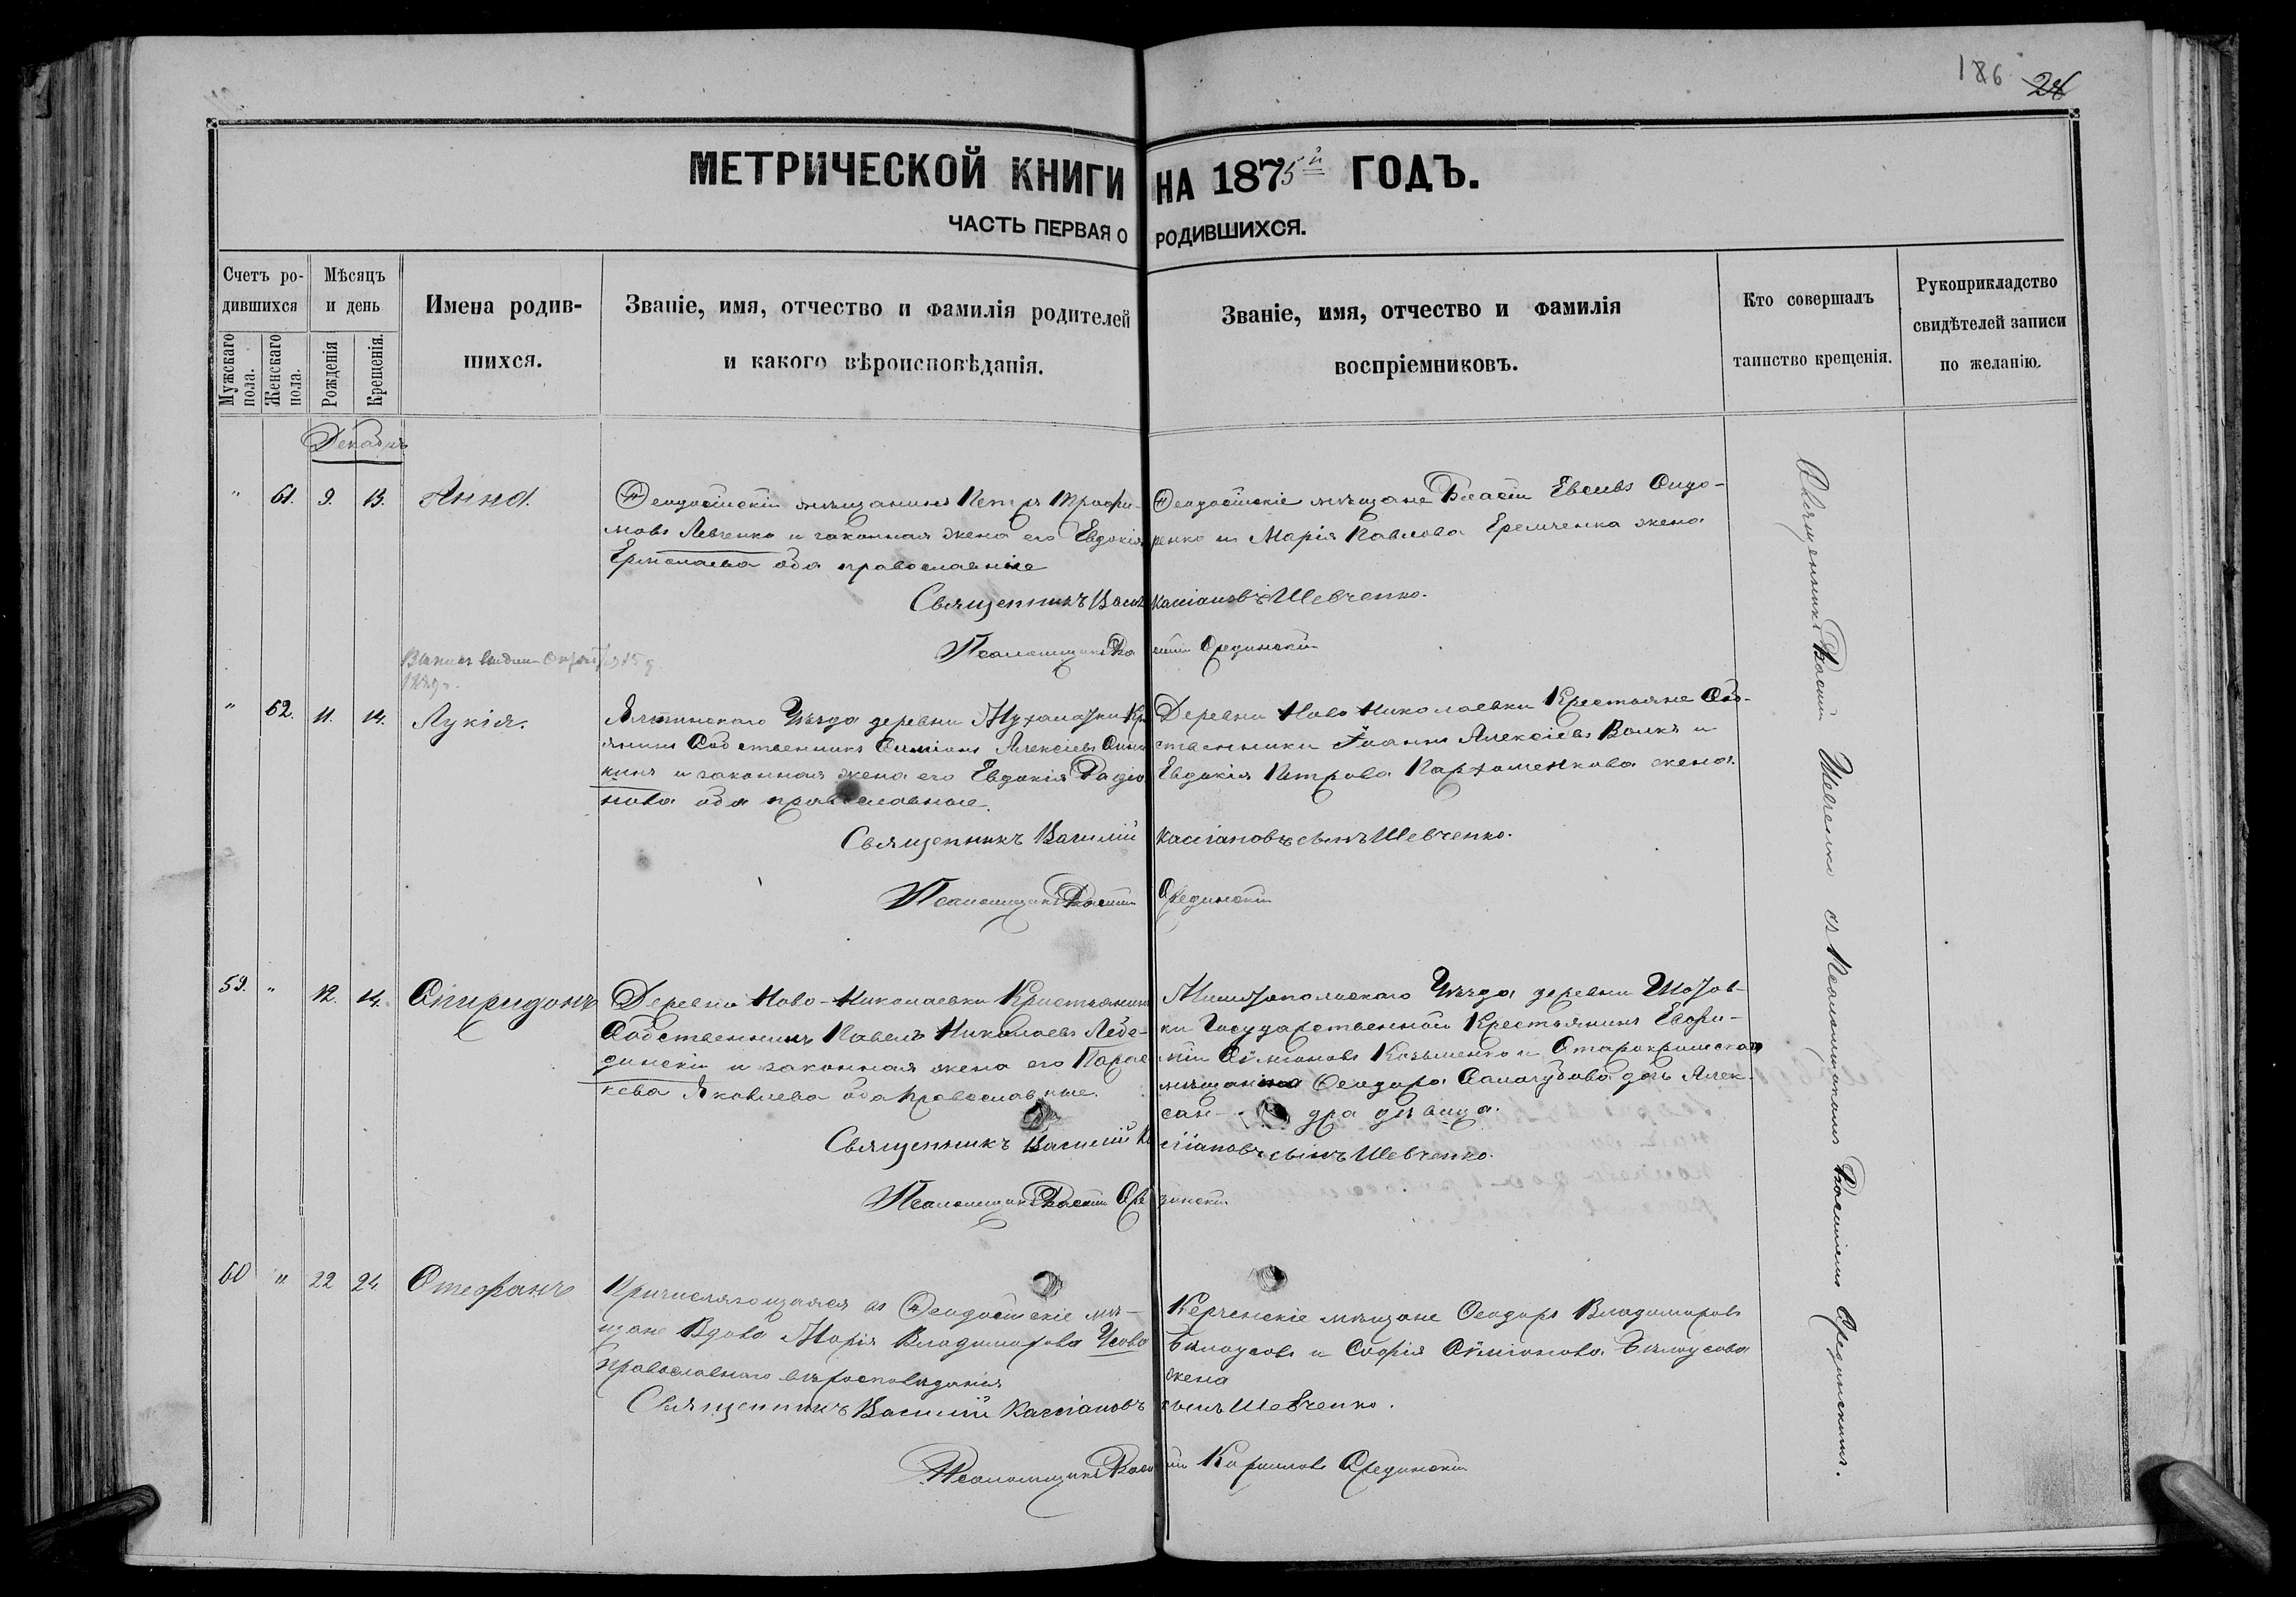 186 28
МЕТРИЧЕСКОЙ КНИГИ НА 1875й ГОДЪ.
ЧАСТЬ ПЕРВАЯ О РОДИВШИХСЯ.
Счетъ ро-
дившихся
Мужскаго пола.
Женскаго пола.
Мѣсяцъ
и день
Рожденія
Крещенія.
Имена родив-
шихся.
Званіе, имя, отчество и фамилія родителей
и какого вѣроисповѣданія.
Званіе, имя, отчество и фамилія
воспріемниковъ.
Кто совершалъ
таинство крещенія.
Рукоприкладство
свидѣтелей записи
по желанію.
Декабрь
" 61. 9. 13. Анна.
Ѳеодосійскій мѣщанинъ Петръ Трофи-
мовъ Левченко и законная жена его Евдокія
Ермолаева оба православные
Ѳеодосійскіе мѣщане Власій Евсевъ Сидо-
ренко и Марія Павлова Еремченка жена
Священникъ Васи Кассіановъ Шевченко.
Псаломщикъ Ва силій Срединскій
" 62. 11. 14. Лукія.
Ялтинскаго Уѣзда деревни Мухалатки Кр
янинъ Собственникъ Симеонъ Алексіевъ
кинъ и законная жена его Евдокія Радіо
нова оба православные.
Деревни Ново Николаевки Крестьяне Соб-
ственники Іоаннъ Алексіевъ Волкъ и
Евдокія Петрова Пархоменкова жена.
Священникъ Василій Кассіановъ сынъ Шевченко.
Псаломщикъ Василій Срединскій
59. " 12. 14. Спиридонъ
Деревни Ново-Николаевки Крестьянинъ
Собственникъ Павелъ Николаевъ Лебе-
динскій и законная жена его Парас
кева Яковлева оба православные.
Мелитопольскаго Уѣзда деревни
ки Государственный Крестьянинъ Евфи-
мій Сѵмеоновъ Козьменко и Старокрымскаго
мѣщанина Ѳеодора дочь Алек-
сан- дра дѣвица.
Священникъ Василій Ка ссіановъ сынъ Шевченко.
Псаломщикъ Василій Сре динскій
60 " 22 24 Стефанъ
Причисляющаяся въ Ѳеодосійскіе мѣ-
щане Вдова Марія Владимирова Усова
Православнаго вѣроисповѣданія
Керченскіе мѣщане Ѳеодоръ Владимировъ
Бѣлоусовъ и Софія Сѵмеонова Бѣлоусова
жена
Священникъ Василій Кассіановъ сынъ Шевченко.
Псаломщикъ Васи лій Кириловъ Срединскій
Священникъ Василій Шевченко съ Псаломщикомъ Василіемъ Срединскимъ.